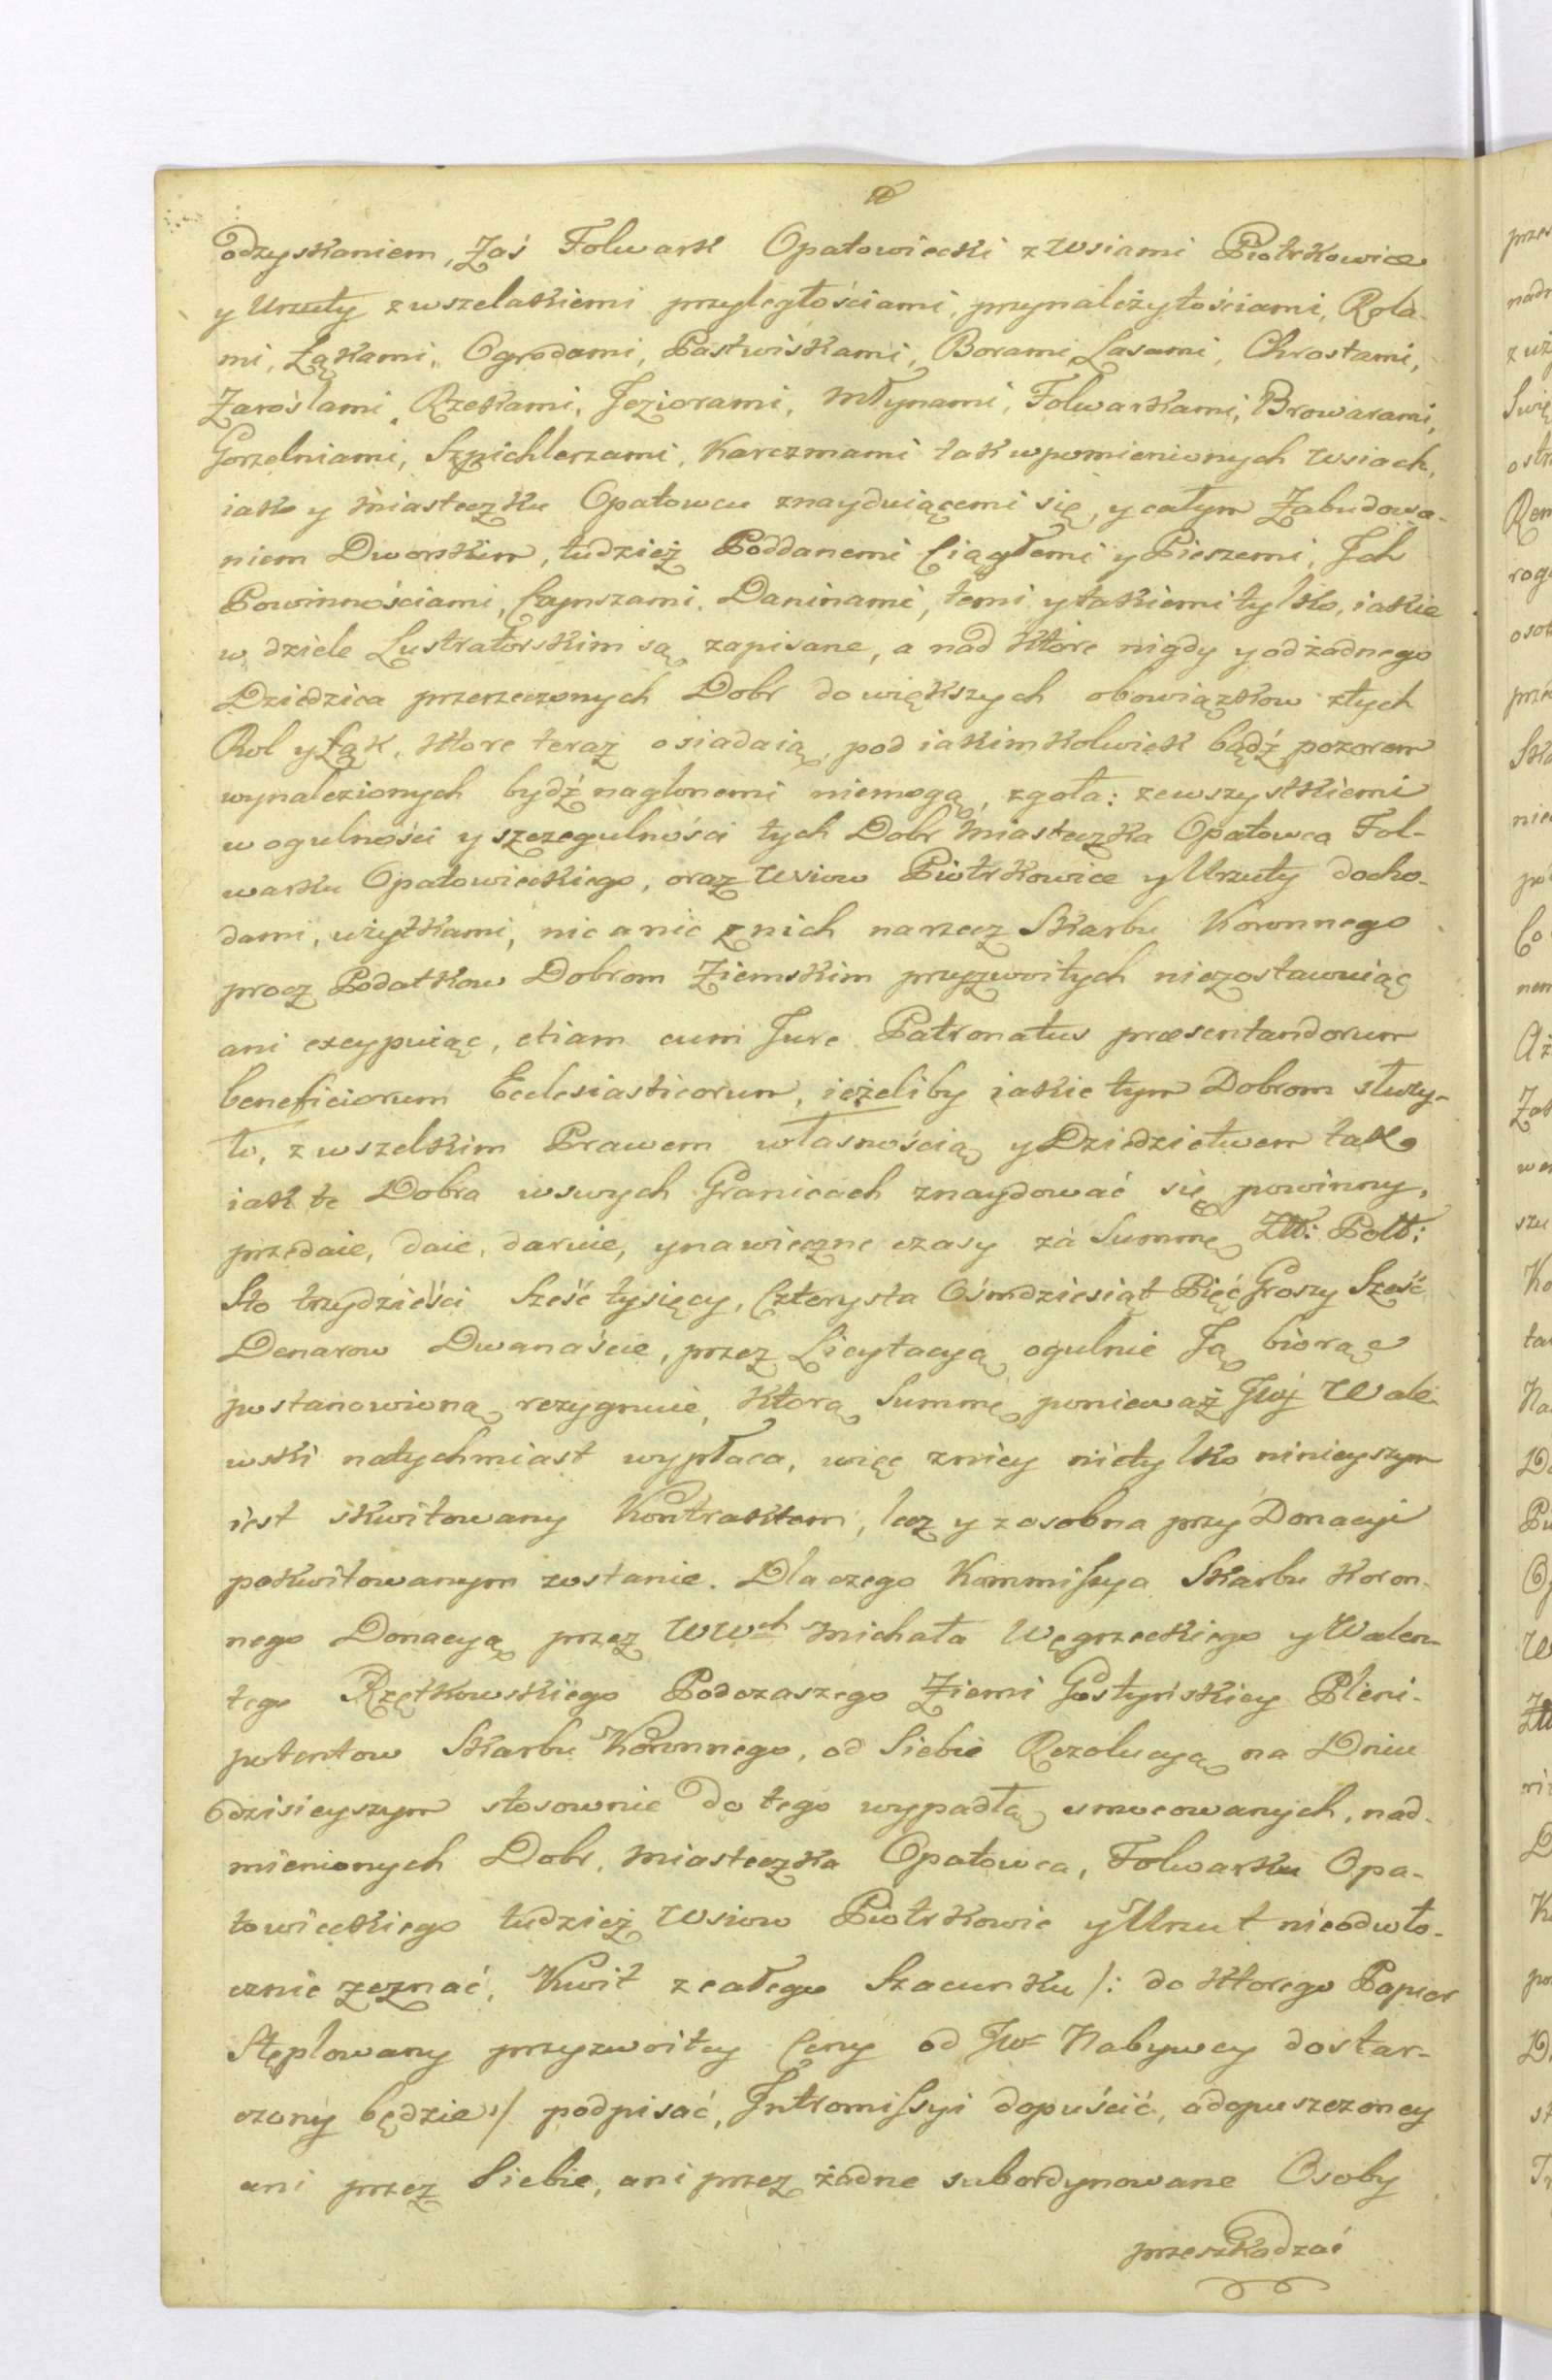 odzyskaniem, Zaś Folwark Opatowiecki z Wsiami Piotrkowice
y Urzuty z wszelakiemi przyległościami, przynależytościami, Rola-
mi, Łąkami, Ogrodami, Pastwiskami, Borami, Lasami, Chrostami,
Zaroślami, Rzekami, Jeziorami, Młynami, Folwarkami, Browarami,
Gorzelniami, Szpichlerzami, Karczmami tak wpomienionych Wsiach,
iako y Miasteczku Opatowcu znayduiącemi się, y całym Zabudowa-
niem Dworskim, tudzież Poddanemi Ciągłemi y Pieszemi, Ich
Powinnościami, Czynszami, Daninami, temi y takiemi tylko, iakie
w dziele Lustratorskim są zapisane, a nad które nigdy y od żadnego
Dziedzica przerzeczonych Dobr do większych obowiązkow z tych
Rol y Łąk, które teraz osiadaią, pod iakimkolwiek bądź pozorem
wynalezionych bydź naglonemi niemogą, zgoła: ze wszystkiemi
w ogulności y szczegulności tych Dobr Miasteczka Opatowca Fol-
warku Opatowieckiego, oraz Wsiow Piotrkowice y Urzuty docho-
dami, użytkami, nic a nic z nich na rzecz Skarbu Koronnego
procz Podatkow Dobrom Ziemskim przyzwoitych niezostawuiąc
ani excypuiąc, etiam cum Jure Patronatus præsentandorum
beneficiorum Ecclesiasticorum, ieżeliby iakie tym Dobrom służy-
ło, z wszelkim Prawem własnością y Dziedzictwem tak
iak te Dobra w swych Granicach znaydować się powinny,
przedaie, daie, daruie, y na wieczne czasy za Summę Złł: Poll:
Sto trzydzieści Sześć tysięcy, Czterysta Ośmdziesiąt Pięć Groszy Sześć
Denarow Dwanaście, przez Licytacyą ogulnie Ją biorąc
postanowioną rezygnuie, którą Summę ponieważ JWy Wale-
wski natychmiast wypłaca, więc z niey nietylko ninieyszym
iest skwitowany Kontraktem, lecz y z osobna przy Donacyi
pokwitowanym zostanie. Dla czego Kommissya Skarbu Koron-
nego Donacyą przez WWch Michała Węgrzeckiego y Walen-
tego Rzętkowskiego Podczaszego Ziemi Gostyńskiey Pleni-
potentow Skarbu Koronnego, od Siebie Rezolucyą na Dniu
dzisieyszym stosownie do tego wypadłą umocowanych, nad-
mienionych Dobr, Miasteczka Opatowca, Folwarku Opa-
towieckiego tudzież Wsiow Piotrkowic y Urzut nieodwło-
cznie zeznać, Kwit z całego Szacunku /: do którego Papier
Stęplowany przyzwoitey Ceny od JW Nabywcy dostar-
czony będzie :/ podpisać, Intromissyi dopuścić, a dopuszczoney
ani przez Siebie, ani przez żadne subordynowane Osoby
przeszkodzać